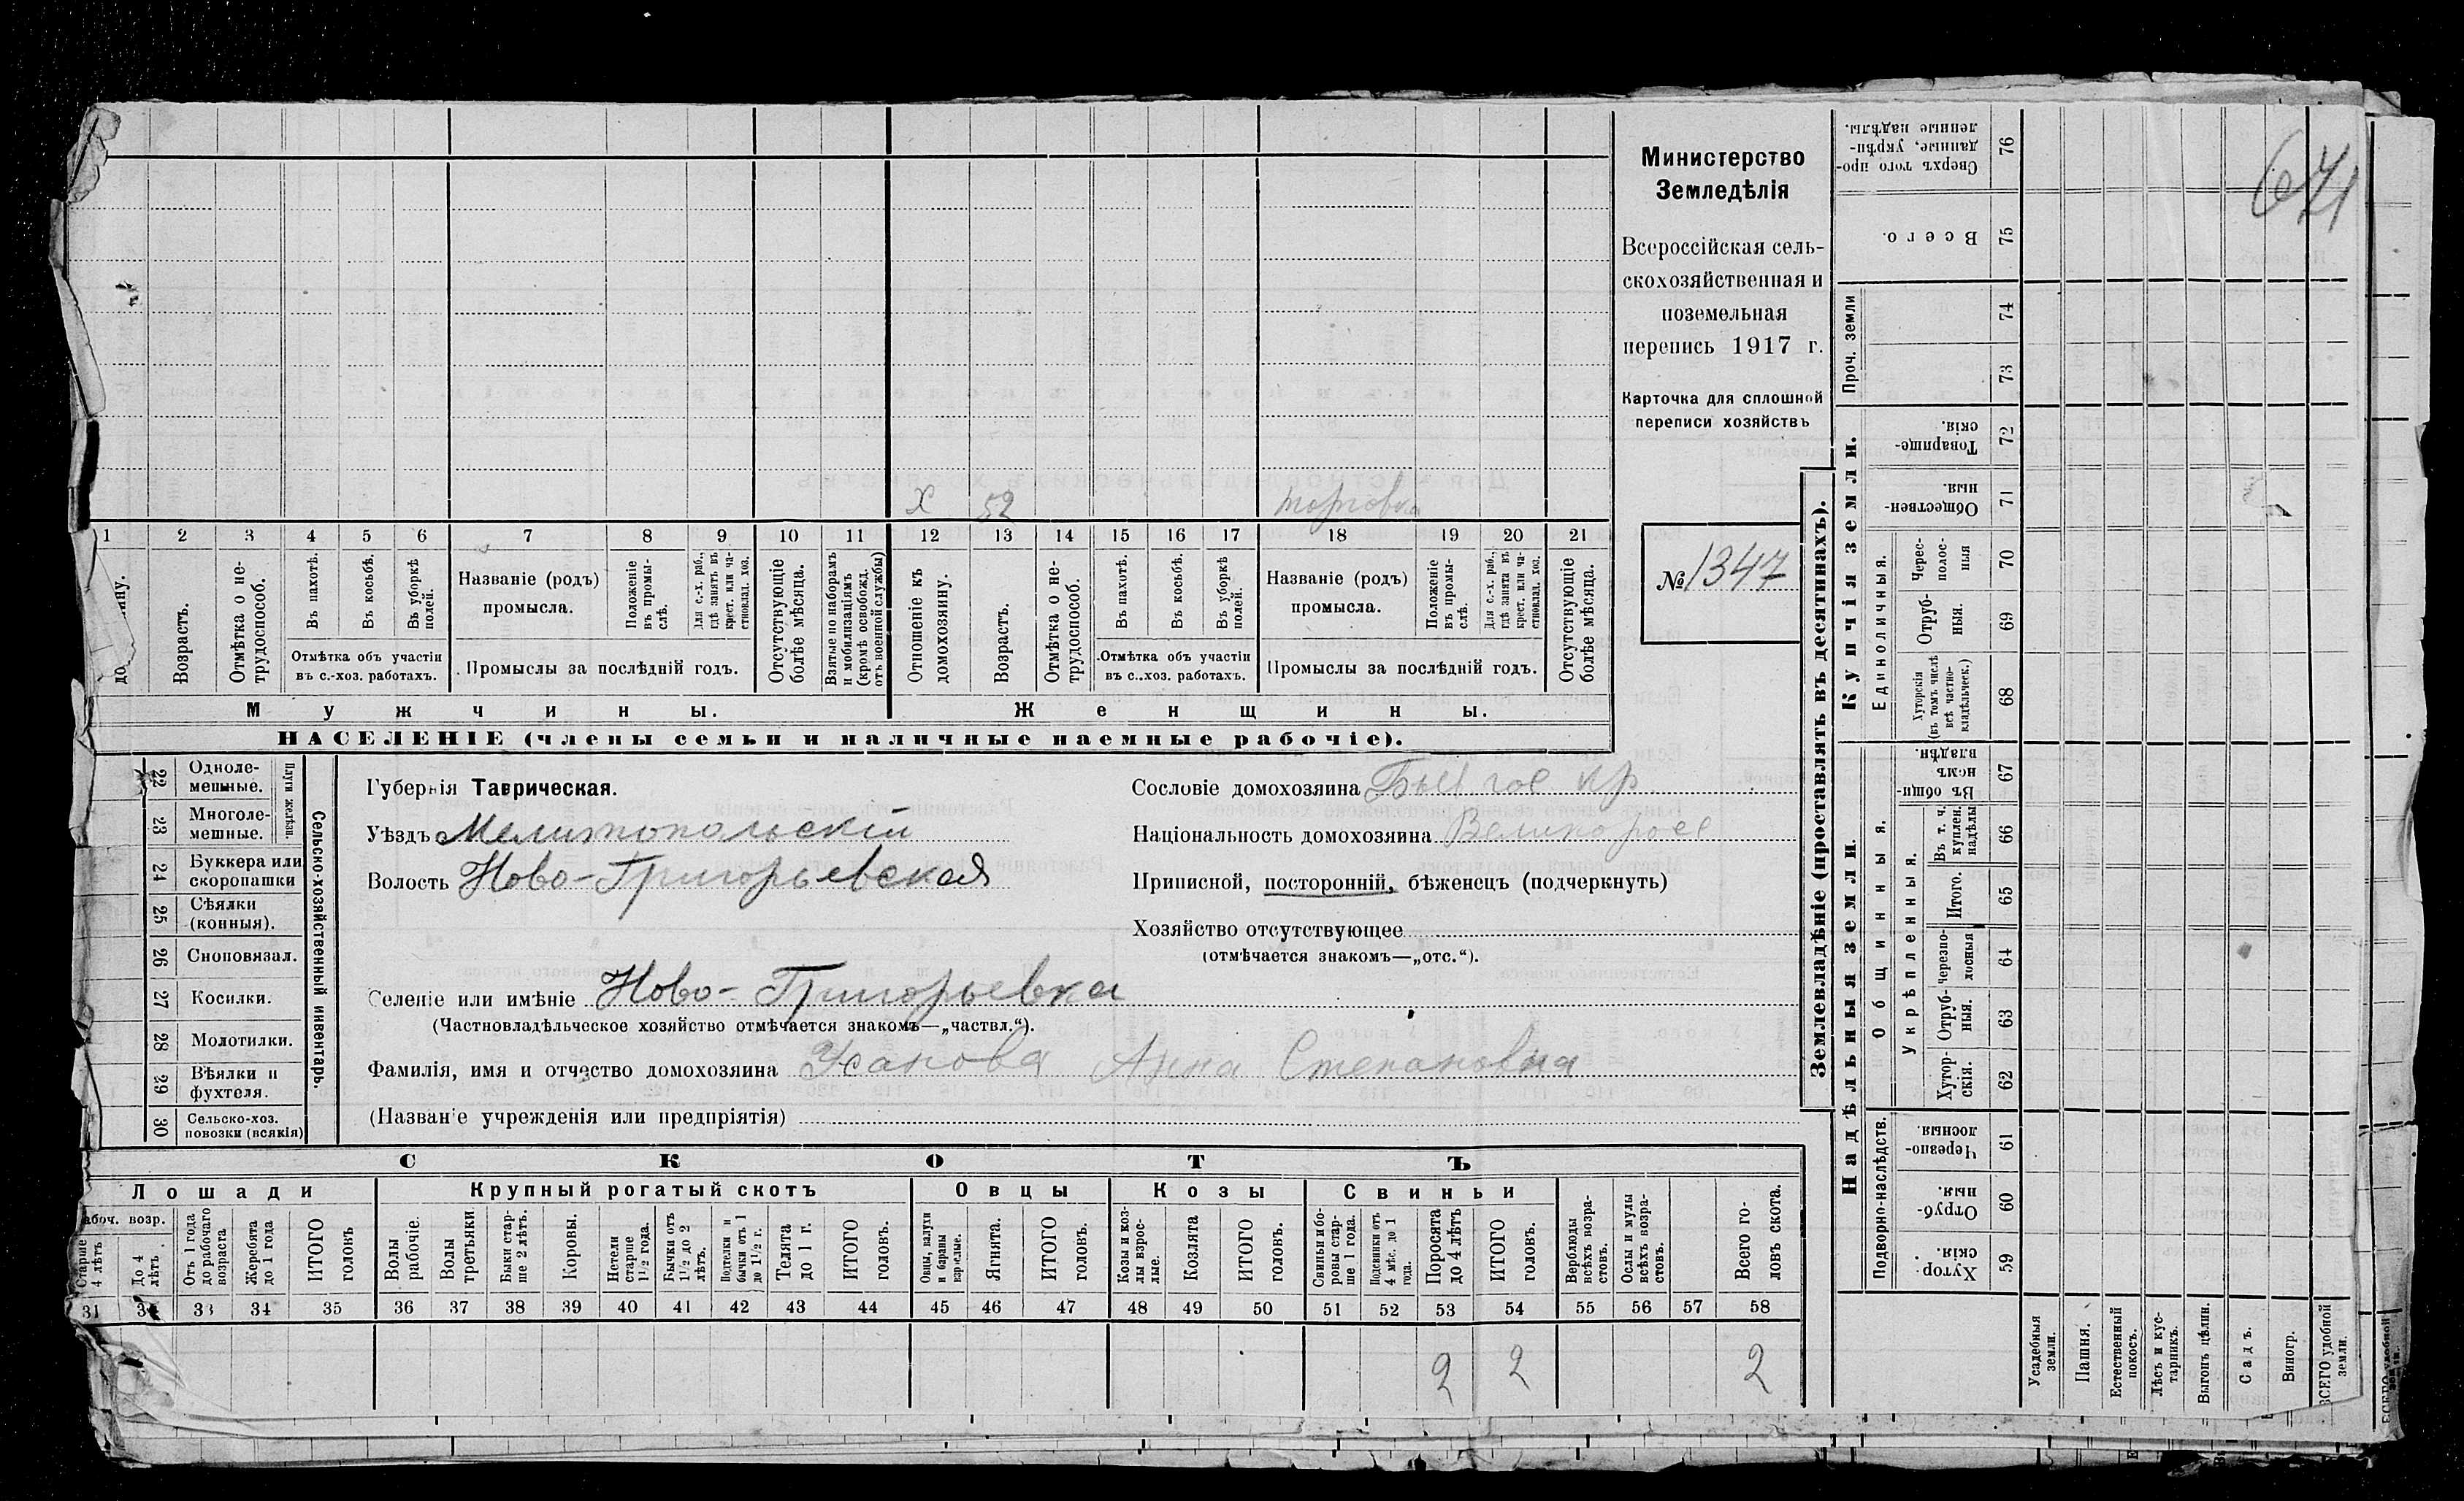 671
Министерство
Земледѣлія
Всероссійская сель-
скохозяйственная и
поземельная
перепись 1917 г.
Карточка для сплошной
переписи хозяйствъ
№ 1347
х 52 торговка
1 2 3 4 5 6 7 8 9 10 11 12 13 14 15 16 17 18 19 20 21
Возрастъ.
Отмѣтка о не-
трудоспособ.
Въ пахотѣ.
Въ косьбѣ.
Въ уборкѣ
полей.
Отмѣтка объ участіи
въ с.-хоз. работахъ.
Названіе (родъ)
промысла.
Положеніе
въ промы-
слѣ.
Для с.-х. раб.,
гдѣ занятъ въ
крест. или ча-
стновлад. хоз.
Промыслы за послѣдній годъ.
Отсутствующіе
болѣе мѣсяца.
Взятые по наборамъ
и мобилизаціямъ
(кромѣ освобожд.
отъ военной службы)
Отношеніе къ
домохозяину.
Возрастъ.
Отмѣтка о не-
трудоспособ.
Въ пахотѣ.
Въ косьбѣ.
Въ уборкѣ
полей.
Отмѣтка объ участіи
въ с.-хоз. работахъ.
Названіе (родъ)
промысла.
Положеніе
въ промы-
слѣ.
Для с.-х. раб.,
гдѣ занята въ
крест. или ча-
стновлад. хоз.
Промыслы за послѣдній годъ.
Отсутствующіе
болѣе мѣсяца.
Мужчины.
Женщины.
НАСЕЛЕНІЕ (члены семьи и наличные наемные рабочіе).
22 Одноле-
мешные.
23 Многоле-
мешные.
Плуги желѣзн.
24 Буккера или
скоропашки
25 Сѣялки
(конныя).
26 Сноповязал.
27 Косилки.
28 Молотилки.
29 Вѣялки и
фухтеля.
30 Сельско-хоз.
повозки (всякія)
Сельско-хозяйственный инвентарь.
Губернія Таврическая.
Уѣздъ Мелитопольскій
Волость Ново-Григорьевская
Селеніе или имѣніе Ново-Григорьевка
(Частновладѣльческое хозяйство отмѣчается знакомъ—„частвл.“).
Фамилія, имя и отчество домохозяина Усанова Анна Степановна
(Названіе учрежденія или предпріятія)
Сословіе домохозяина Быв гос кр
Національность домохозяина Великоросс
Приписной, посторонній, бѣженецъ (подчеркнуть)
Хозяйство отсутствующее
(отмѣчается знакомъ—„отс.“).
СКОТЪ
Лошади
Крупный рогатый скотъ
Овцы
Козы
Свиньи
Рабоч. возр.
Старше
4 лѣтъ
До 4
лѣтъ.
Отъ 1 года
до рабочаго
возраста
Жеребята
до 1 года
ИТОГО
головъ
Волы
рабочіе.
Волы
третьяки
Быки стар-
ше 2 лѣтъ.
Коровы.
Нетели
старше
1 1/2 года.
Бычки отъ
1 1/2 до 2
лѣтъ.
Подтелки и
бычки отъ 1
до 1 1/2 г.
Телята
до 1 г.
ИТОГО
головъ.
Овцы, валухи
и бараны
взрослые.
Ягнята.
ИТОГО
головъ.
Козы и коз-
лы взрос-
лые.
Козлята
ИТОГО
головъ.
Свиньи и бо-
ровы стар-
ше 1 года.
Подсвинки отъ
4 мѣс. до 1
года.
Поросята
до 4 лѣтъ
ИТОГО
головъ.
Верблюды
всѣхъ возра-
стовъ.
Ослы и мулы
всѣхъ возра-
стовъ.
Всего го-
ловъ скота.
31 32 33 34 35 36 37 38 39 40 41 42 43 44 45 46 47 48 49 50 51 52 53 54 55 56 57 58
2 2 2
Землевладѣніе (проставлять въ десятинахъ).
Купчія земли.
Надѣльныя земли.
Проч. земли
Единоличныя.
Общинныя.
Укрѣпленныя.
Подворно-наслѣдств.
Сверхъ того про-
данные, укрѣп-
ленные надѣлы.
76
Всего.
75
74
73
Товарище-
скія.
72
Обществен-
ныя.
71
Черес-
полос-
ныя
70
Отруб-
ныя.
69
Хуторскія
(въ томъ числѣ
всѣ частно-
владѣльческ.)
68
Въ общи-
номъ
владѣн.
67
Въ т. ч.
куплен.
надѣлы
66
Итого.
65
Черезпо-
лосныя
64
Отруб-
ныя.
63
Хутор-
скія.
62
Черезпо-
лосныя
61
Отруб-
ныя.
60
Хутор-
скія.
59
Усадебныя
земли.
Пашня.
Естественный
покосъ.
Лѣсъ и кус-
тарникъ.
Выгонъ цѣлин.
Садъ.
Виногр.
ВСЕГО удобной
земли.